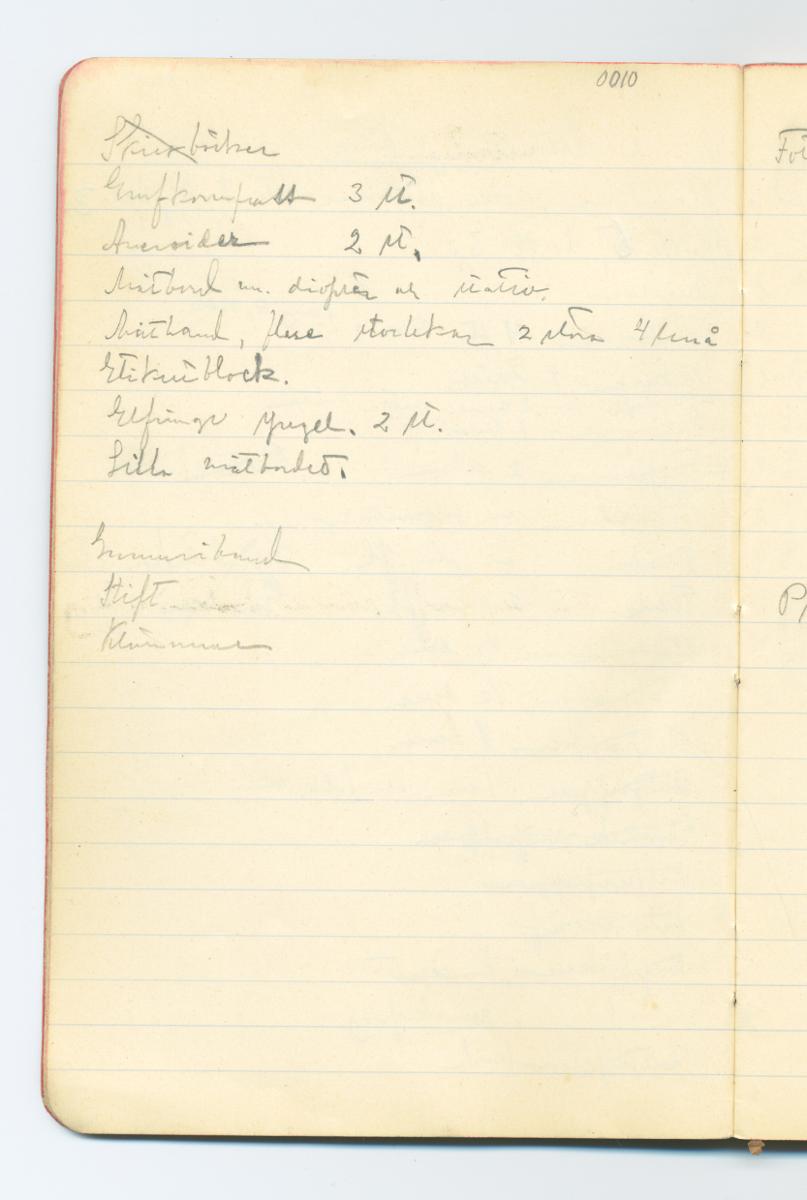 0010
Skrivböcker
Grufkompass 3 st.
Aneroider 2 st.
Mätbord m. diopter och stativ.
Mätband, flere storlekar 2 stora 4 små
Etikettblock.
Elfvings spegel. 2 st.
Lilla mätbordet.
Gummiband
Stift
Klämmare